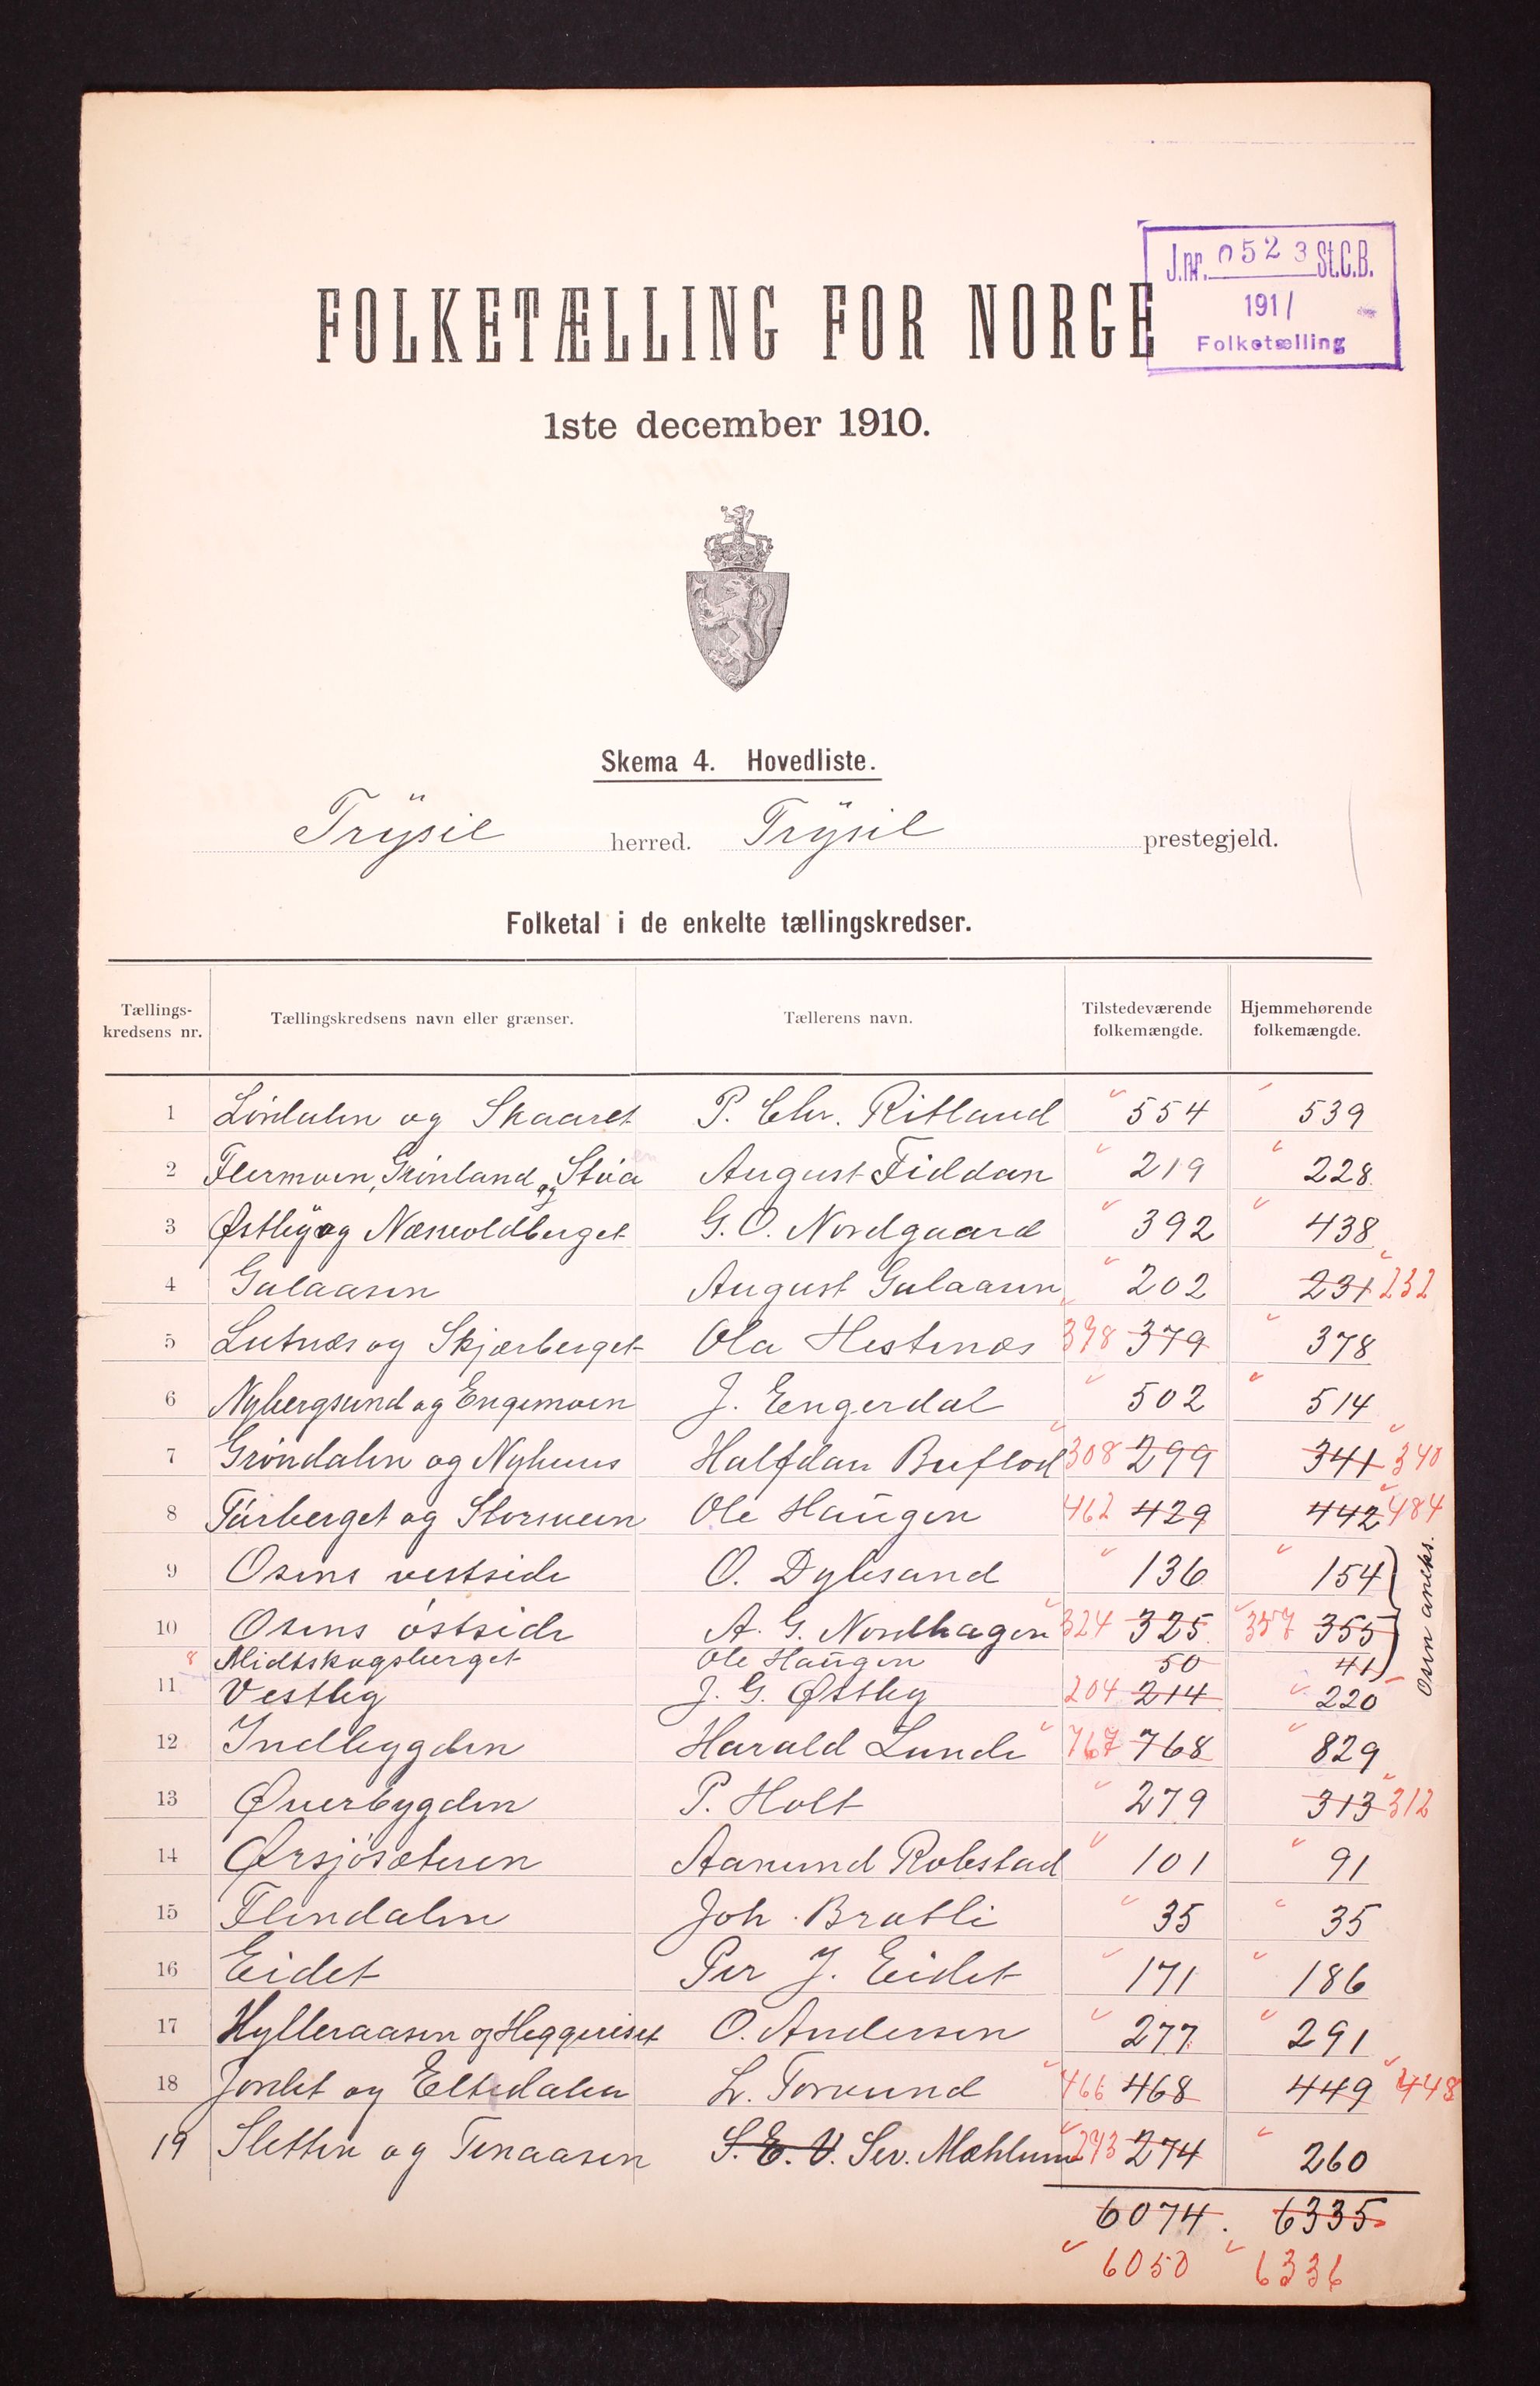 J.nr. 0523 St.C.B.
1911
Folketælling
FOLKETÆLLING FOR NORGE
1ste december 1910.
Skema 4. Hovedliste.
Trysil herred. Trysil prestegjeld.
Folketal i de enkelte tællingskredser.
Tællings-kredsens nr. Tællingskredsens navn eller grænser. Tællerens navn. Tilstedeværende folkemængde. Hjemmehørende folkemængde.
1 Lördalen og Skaaret P. Chr. Ritland 554 539
2 Flermoen, Grönland og Støa August Fiddan 219 228
3 Østby og Næsvoldberget G. O. Nordgaard 392 438
4 Galaasen August Galaasen 202 231 232
5 Lutnæs og Skjærberget Ola Hestnæs 378 379 378
6 Nybergsund og Engemoen J. Engerdal 502 514
7 Gröndalen og Nyhuus Halfdan Buflod 308 299 341 340
8 Tørberget og Stormoen Ole Haugen 462 429 442 484
9 Osens vestside O. Dybsand 136 154
10 Osens östside A. G. Nordhagen 324 325 357 355
8 Midtskogsberget Ole Haugen 50 41
Osen aneks.
11 Vestby J. G. Østby 204 214 220
12 Indbygden Harald Lunde 767 768 829
13 Øverbygden P. Holt 279 313 312
14 Ørsjösæteren Aamund Robstad 101 91
15 Flendalen Joh. Bratli 35 35
16 Eidet Per J. Eidet 171 186
17 Hylleraasen og Heggeriset O. Andersen 277 291
18 Jordet og Eltdalen L. Torsund 466 468 449 448
19 Sletten og Tenaasen S. E. V. Sev. Mæhlum 273 274 260
6074. 6335
6050 6336